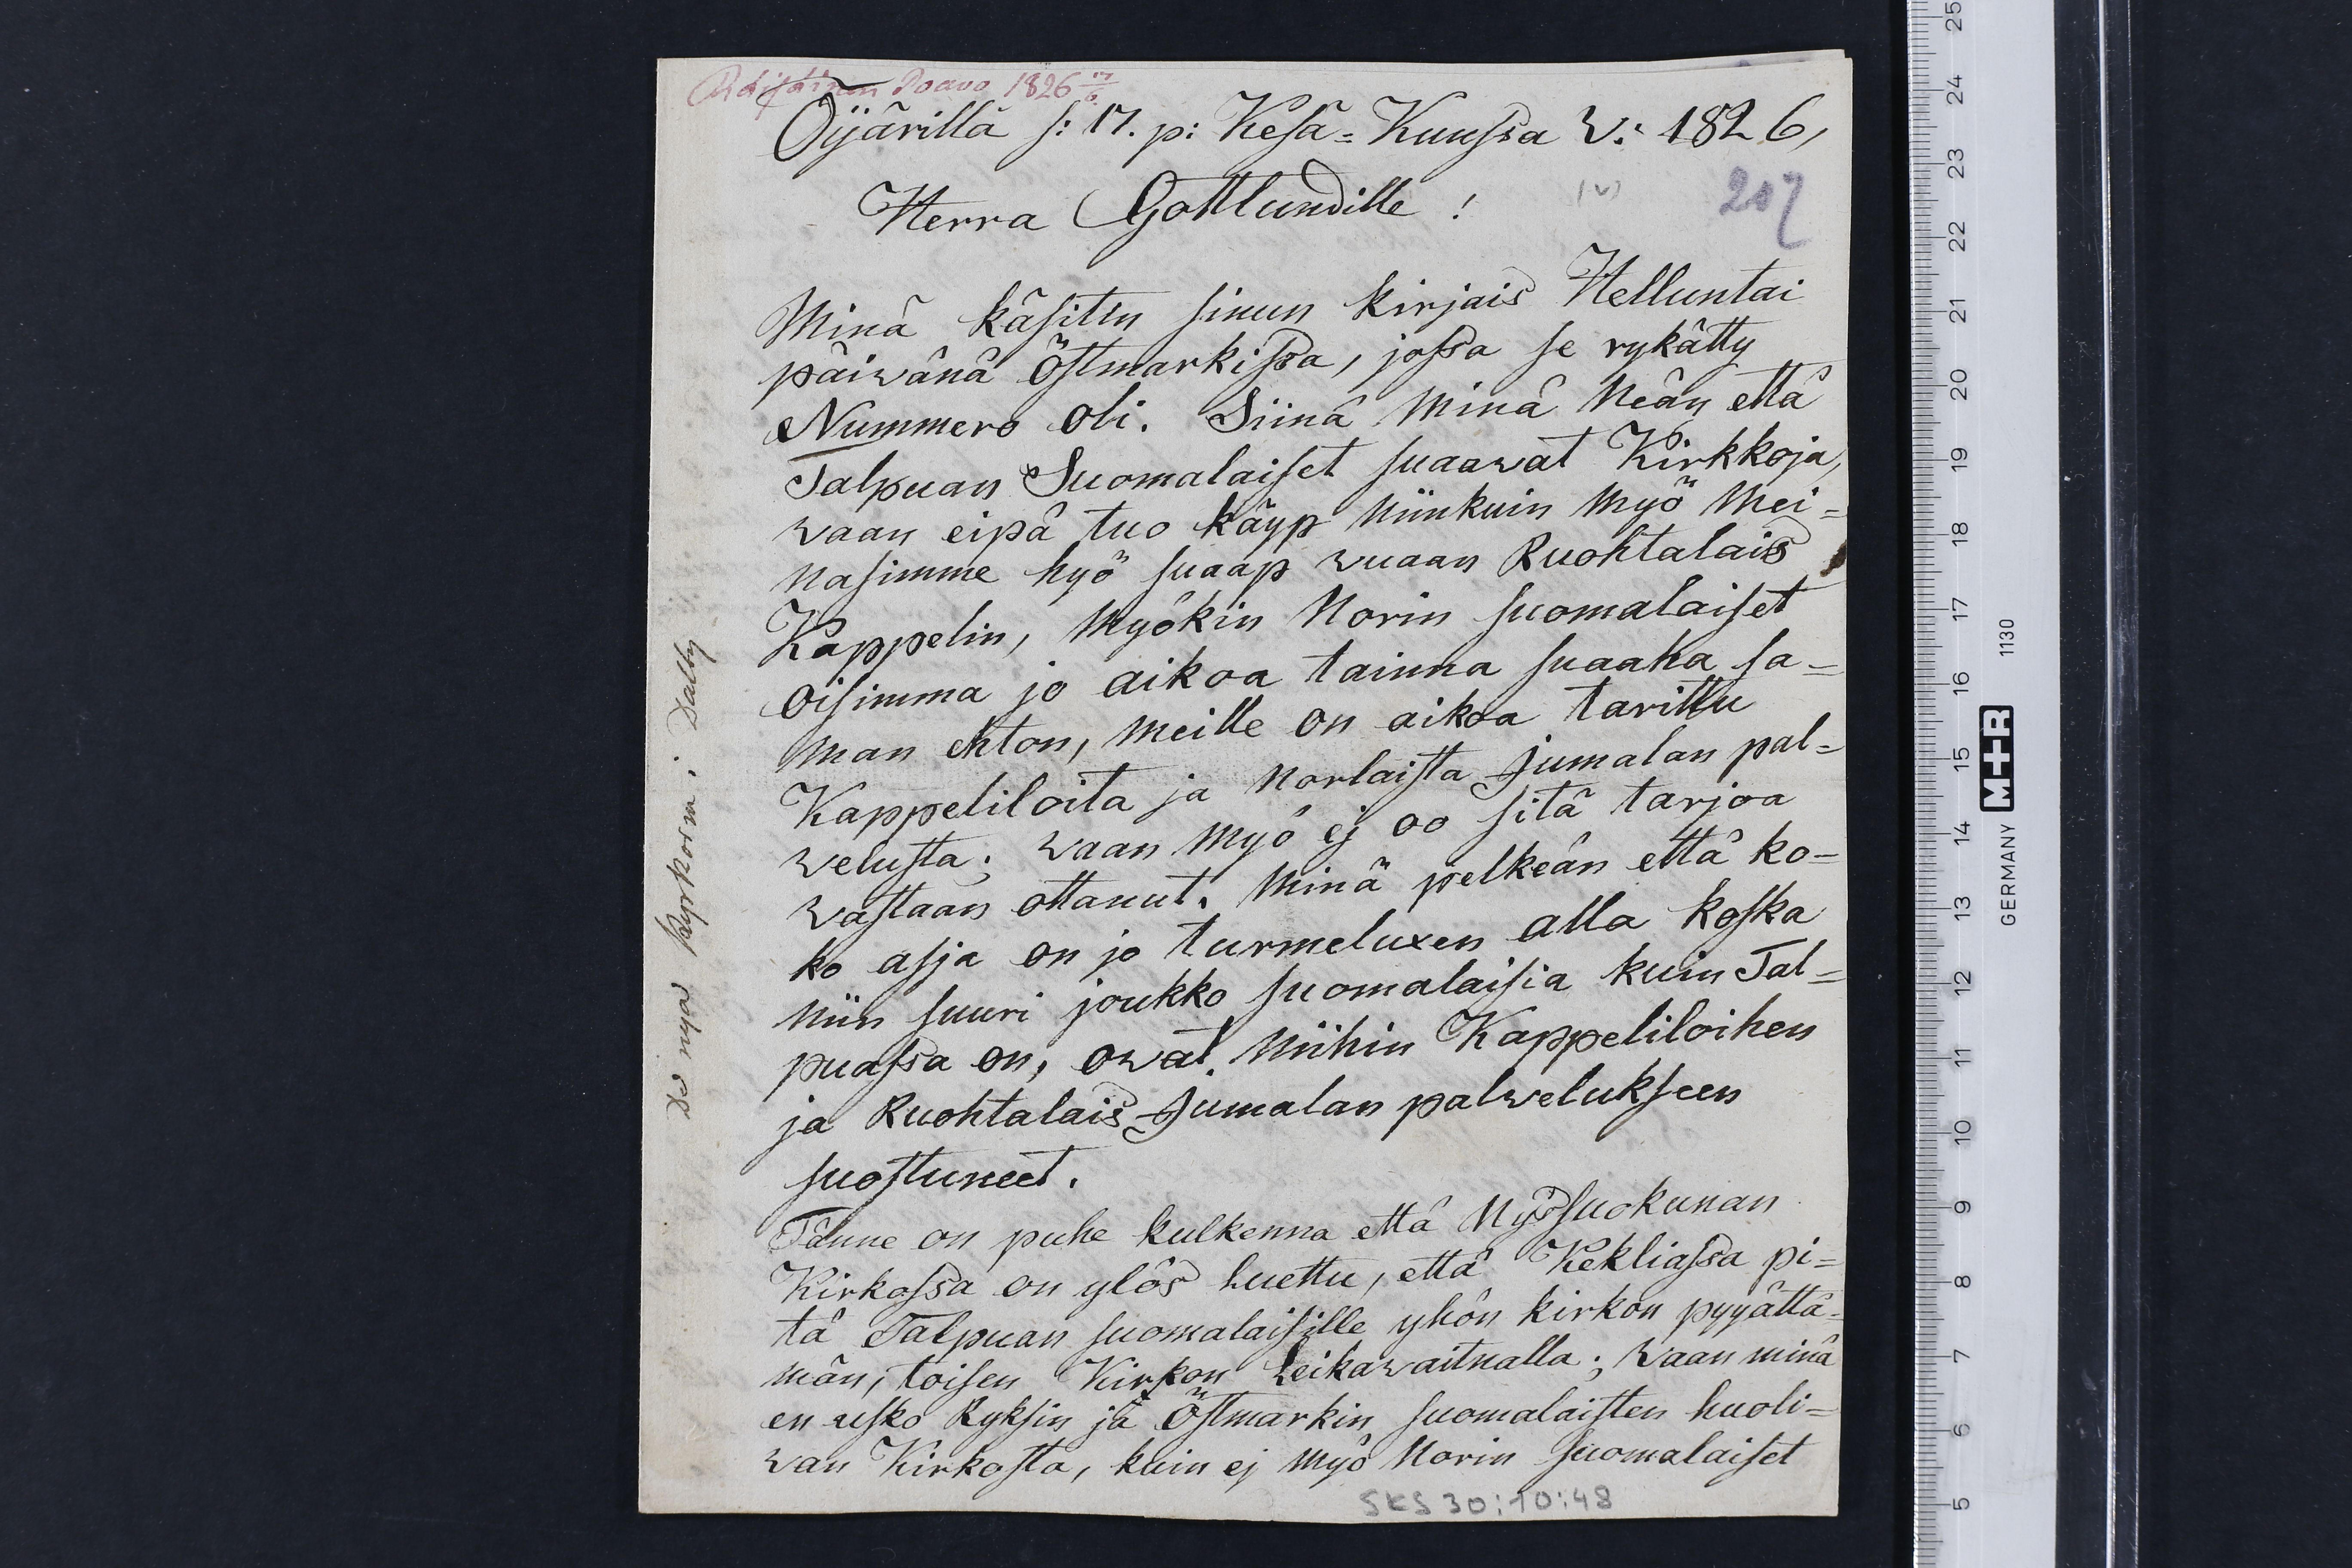 Räisäinen Poavo 1826 17/6
Öijärillä s: 17. p: Kesä=Kuussa v: 1826,
Herra Gottlundille !
(v)
207
Minä käsitin sinun kirjais Helluntai
päiwänä Östmarkissa, jossa se rykätty
Nummero oli. Siinä minä neän että
Talpuan Suomalaiset suaawat Kirkkoja,
waan eipä tuo käyp niinkuin myö mei=
nasimme hyö suaap wuaan Ruohtalais
Kappelin, myökin Norin suomalaiset
oisimma jo aikoa tainna suaaha sa=
man ehton, meille on aikoa tarittu
Kappeliloita ja Norlaista Jumalan pal=
welusta; waan myö ej oo sitä tarjoa
wastaan ottanut. Minä pelkeän että ko=
ko asja on jo turmeluxen alla koska
niin suuri joukko suomalaisia kuin Tal=
puassa on, owat niihin Kappeliloihen
ja Ruohtalais Jumalan palwelukseen
suostuneet.
Tänne on puhe kulkenna että Nyösuokunan
Kirkossa on ylös luettu, että Kekliassa pi=
tä Talpuan suomalaisille yhön kirkon pyyättä=
män, toisen Kirkon Leikawaitnalla; waan minä
en usko Ryksin ja Östmarkin suomalaisten huoli=
wan Kirkosta, kuin ej myö Norin suomalaiset
De nya kyrkorna i Dalby
SKS 30:10:48
25
24
23
22
21
20
19
18
17
16
15
14
13
12
11
10
9
8
7
6
5
GERMANY M+R 1130